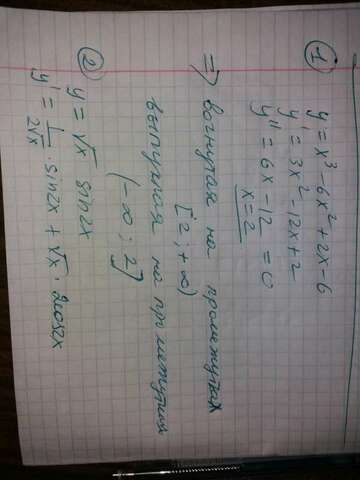 ① y = x³ - 6x² + 2x - 6
y' = 3x² - 12x + 2
y'' = 6x - 12 = 0
x = 2
=> вогнутая на промежутках
[2; +∞)
выпуклая на промежутках
(-∞; 2]
② y = √x sin2x
y' = 1/2√x · sin2x + √x · 2cos2x